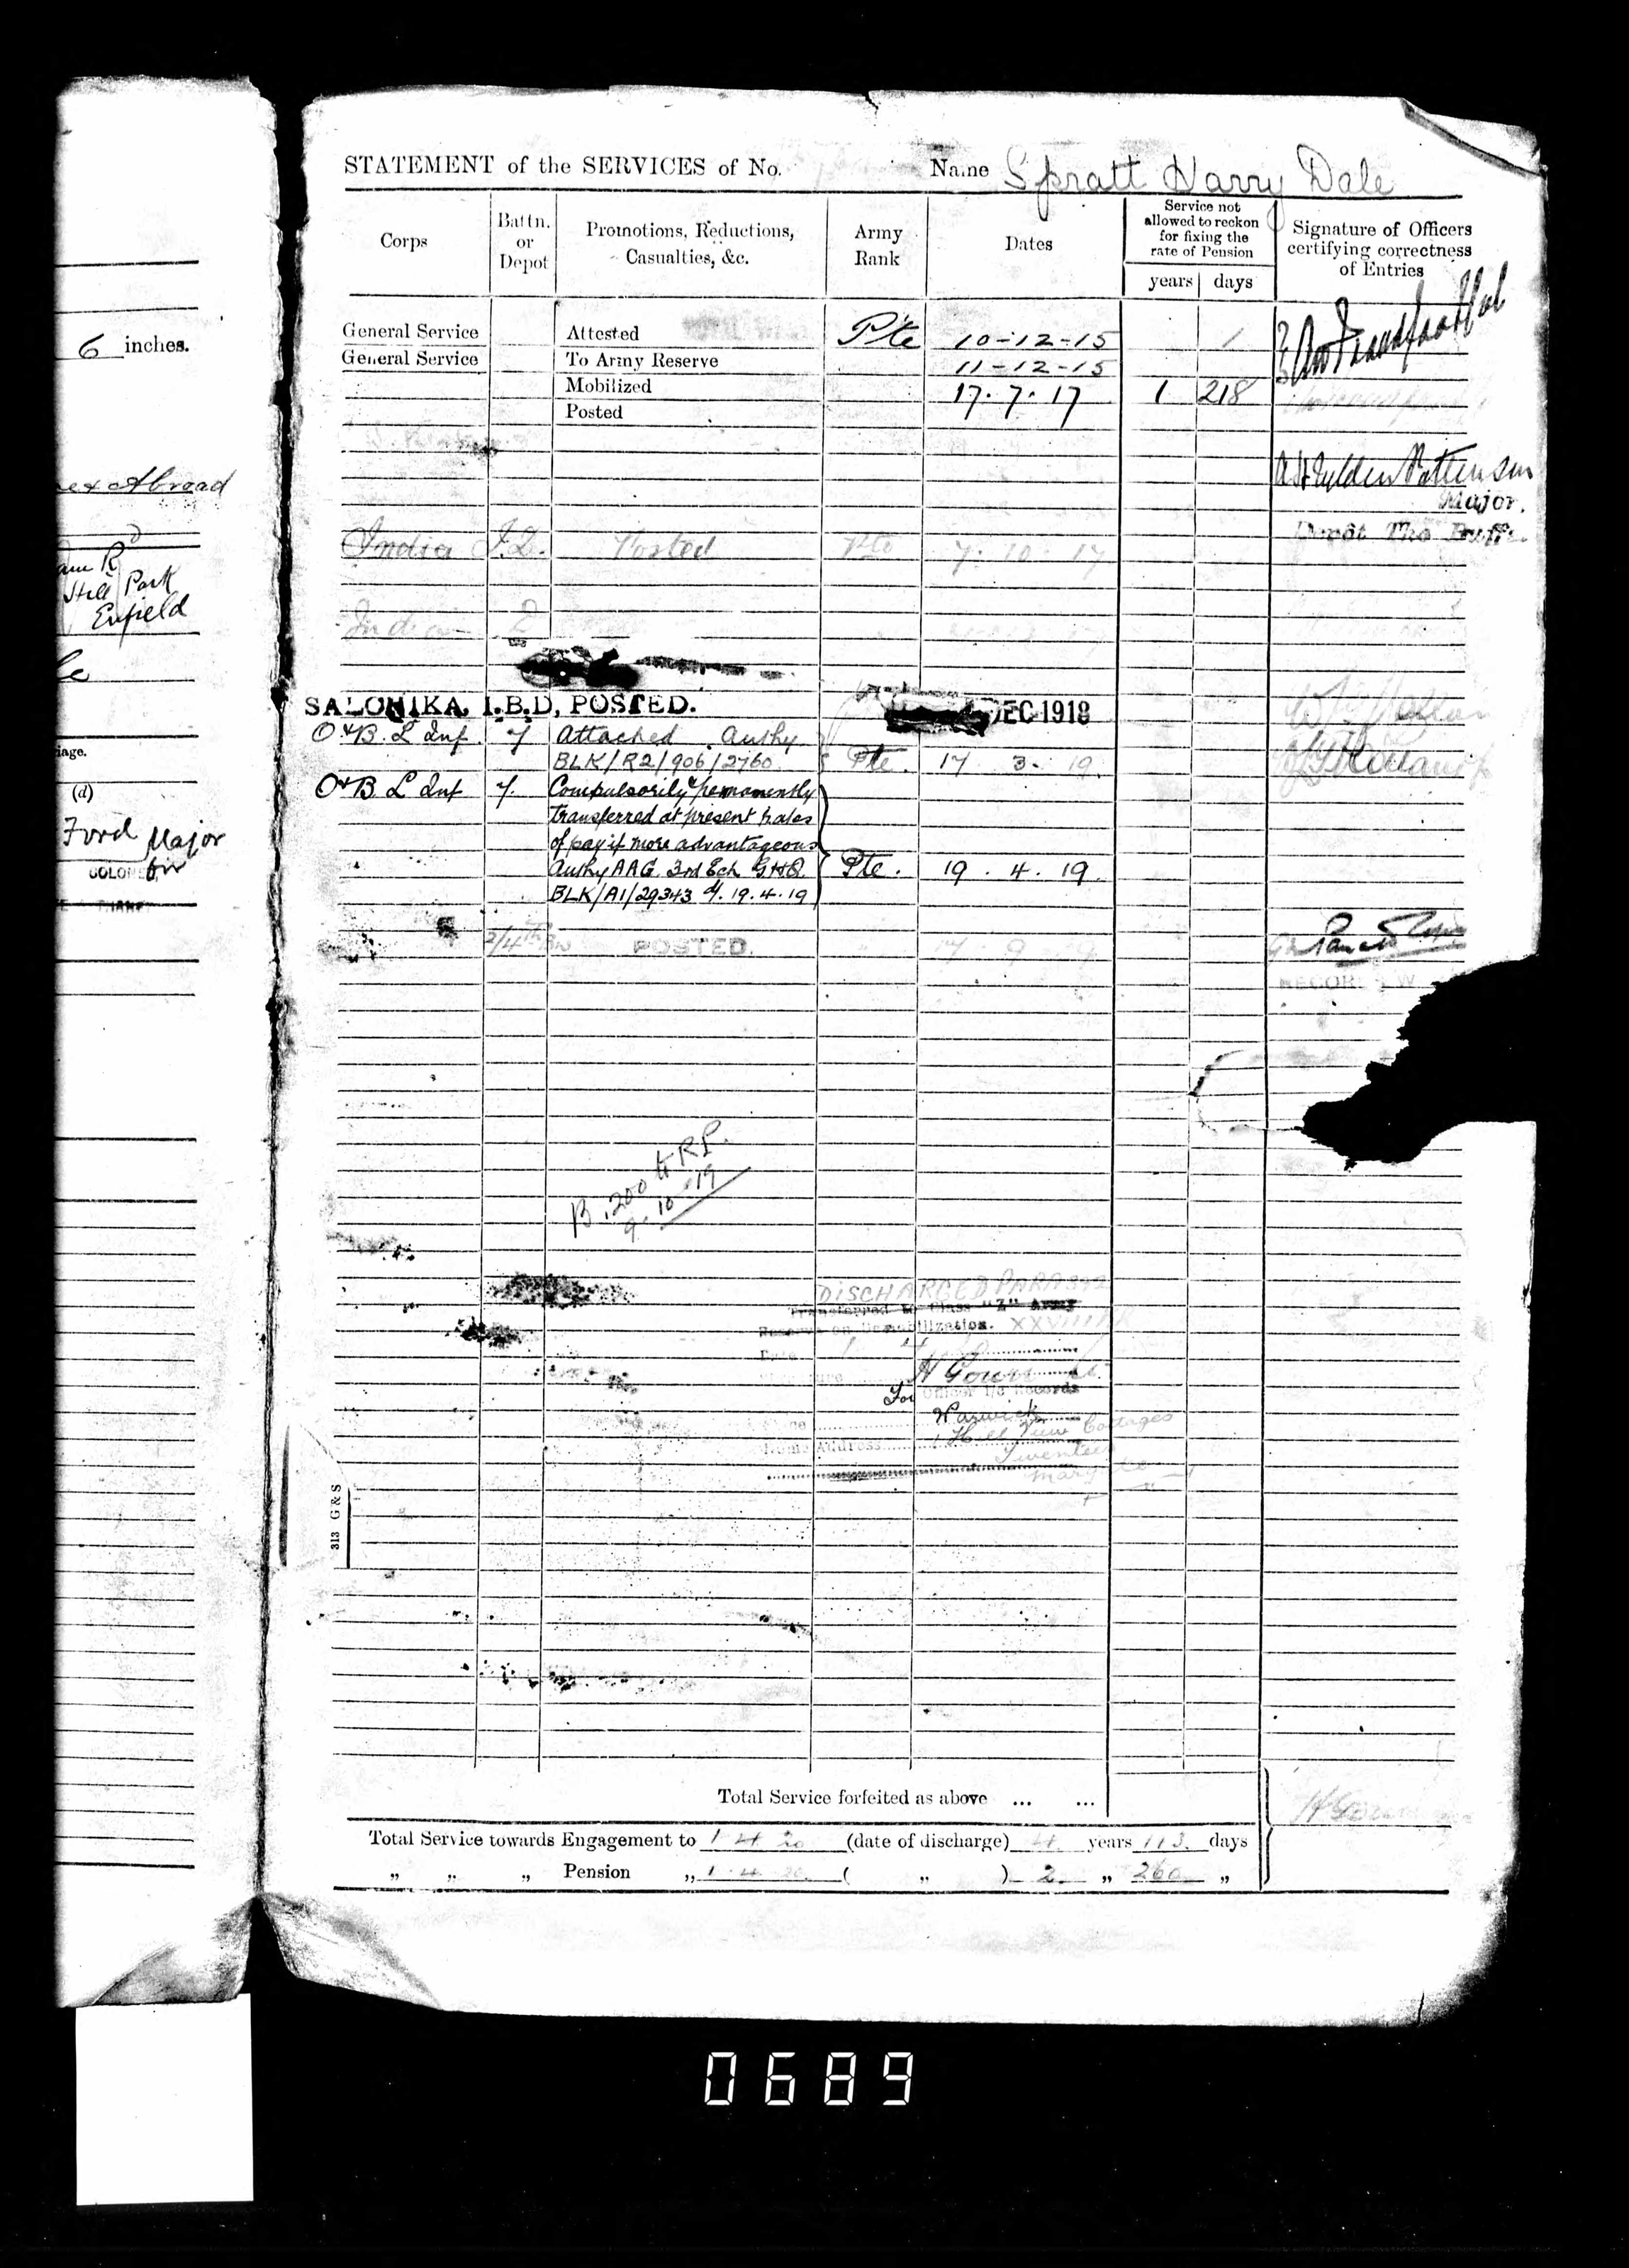 6 inches.
Abroad
Hill Park
Enfield
iage.
(d)
Ford Major
for
STATEMENT of the SERVICES of No. Name Spratt Harry Dale
Corps
Battn. or Depot
Promotions, Reductions, Casualties, &c.
Army Rank
Dates
Service not allowed to reckon for fixing the rate of Pension
years days
Signature of Officers certifying correctness of Entries
General Service Attested Pte 10-12-15 1
General Service To Army Reserve 11-12-15
Mobilized 17.7.17 1 218
Posted
Major.
Depôt The Buffs
India Posted Pte 7. 10. 17
India
SALONIKA, I.B.D, POSTED. DEC 1918
O & B. L Inf. 7 Attached Authy
BLK/R2/906/2760. Pte. 17 3. 19.
O & B L Inf 7. Compulsorily & permanently
transferred at present rates
of pay if more advantageous
Authy AAG. 3rd Ech GHQ. Pte. 19. 4. 19.
BLK/A1/29343 d/. 19.4.19
2/4th Bn POSTED. 17 9
B.200 to RP.
9.10.19
DISCHARGED PARA 392
Transferred to Class "Z" Army
Reserve on Demobilization. XXVIII
Date
For Officer i/c Records
Warwick
Home Address 1 Hill View Cottages
313 G & S
Total Service forfeited as above ... ...
Total Service towards Engagement to 1 4 20 (date of discharge) 4 years 113 days
„ „ „ Pension „ 1.4.20 ( „ ) 2 „ 260 „
0689